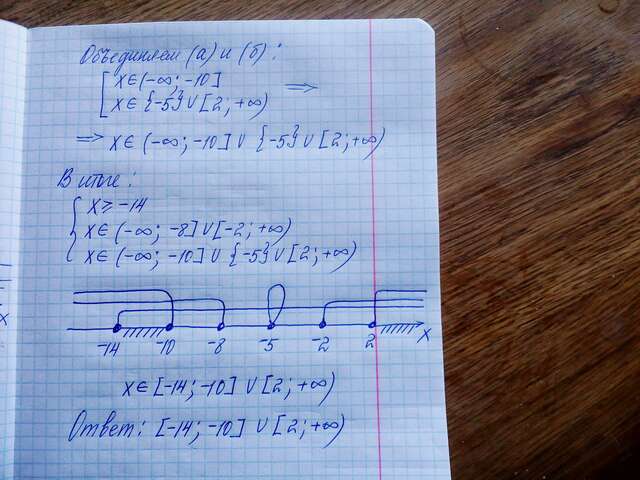 Объединяем (а) и (б):
[ x∈(-∞; -10]
x∈{-5}∪[2; +∞) ⇒
⇒ x∈(-∞; -10]∪{-5}∪[2; +∞)
В итоге:
{ x≥-14
x∈(-∞; -8]∪[-2; +∞)
x∈(-∞; -10]∪{-5}∪[2; +∞)
-14 -10 -8 -5 -2 2 x
x∈[-14; -10]∪[2; +∞)
Ответ: [-14; -10]∪[2; +∞)
x